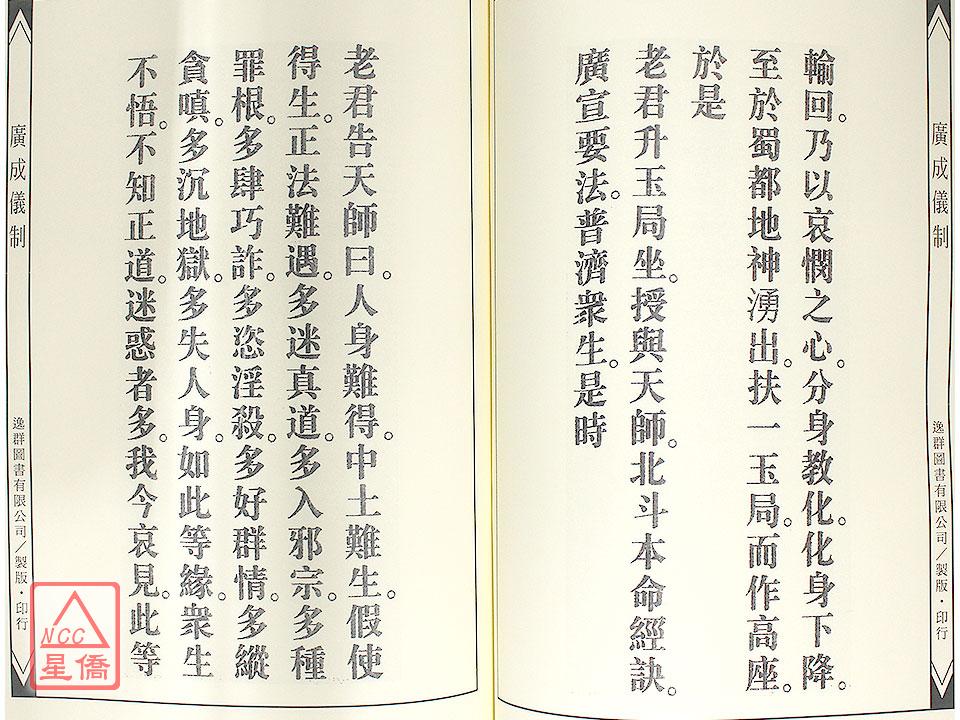 廣成儀制
逸群圖書有限公司／製版・印行
輪回。乃以哀憫之心。分身教化。化身下降。
至於蜀都地神湧出。扶一玉局。而作高座。
於是
老君升玉局坐。授與天師。北斗本命經訣。
廣宣要法。普濟衆生。是時
老君告天師曰。人身難得。中土難生。假使
得生。正法難遇。多迷真道。多入邪宗。多種
罪根。多肆巧詐。多恣淫殺。多好群情。多縱
貪嗔。多沉地獄。多失人身。如此等緣。衆生
不悟。不知正道。迷惑者多。我今哀見。此等
廣成儀制
逸群圖書有限公司／製版・印行
NCC
星僑